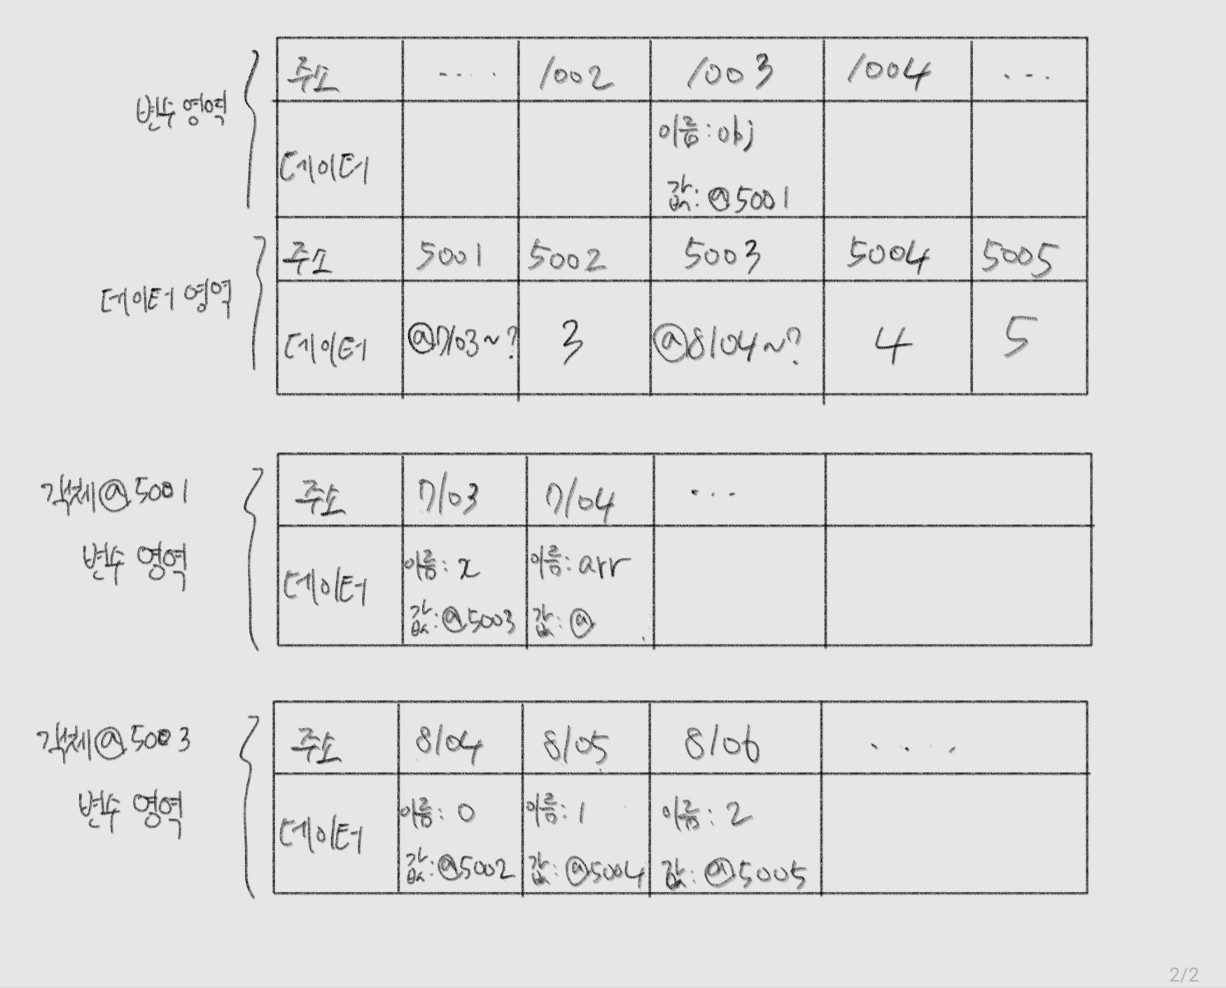 변수 영역
주소 .... 1002 1003 1004 ...
데이터
이름: obj
값: @5001
데이터 영역
주소 5001 5002 5003 5004 5005
데이터 @7103~? 3 @8104~? 4 5
객체@5001
변수 영역
주소 7103 7104 ...
데이터
이름: x 이름: arr
값: @5003 값: @
객체@5003
변수 영역
주소 8104 8105 8106 ....
데이터
이름: 0 이름: 1 이름: 2
값: @5002 값: @5004 값: @5005
2/2